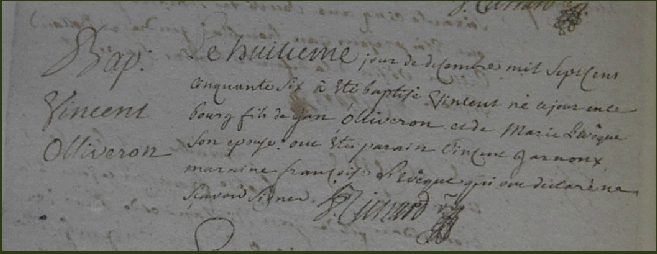 Bap:
Vincent
Olliveron
Le huitieme jour de decembre mil sept cens
cinquante six a été baptisé Vincent né ce jour en ce
bourg fils de jan Olliveron et de Marie Levêque
son epouse. ont été parain Vincent
maraine françoise Levêque qui ont declaré ne
scavoir signer